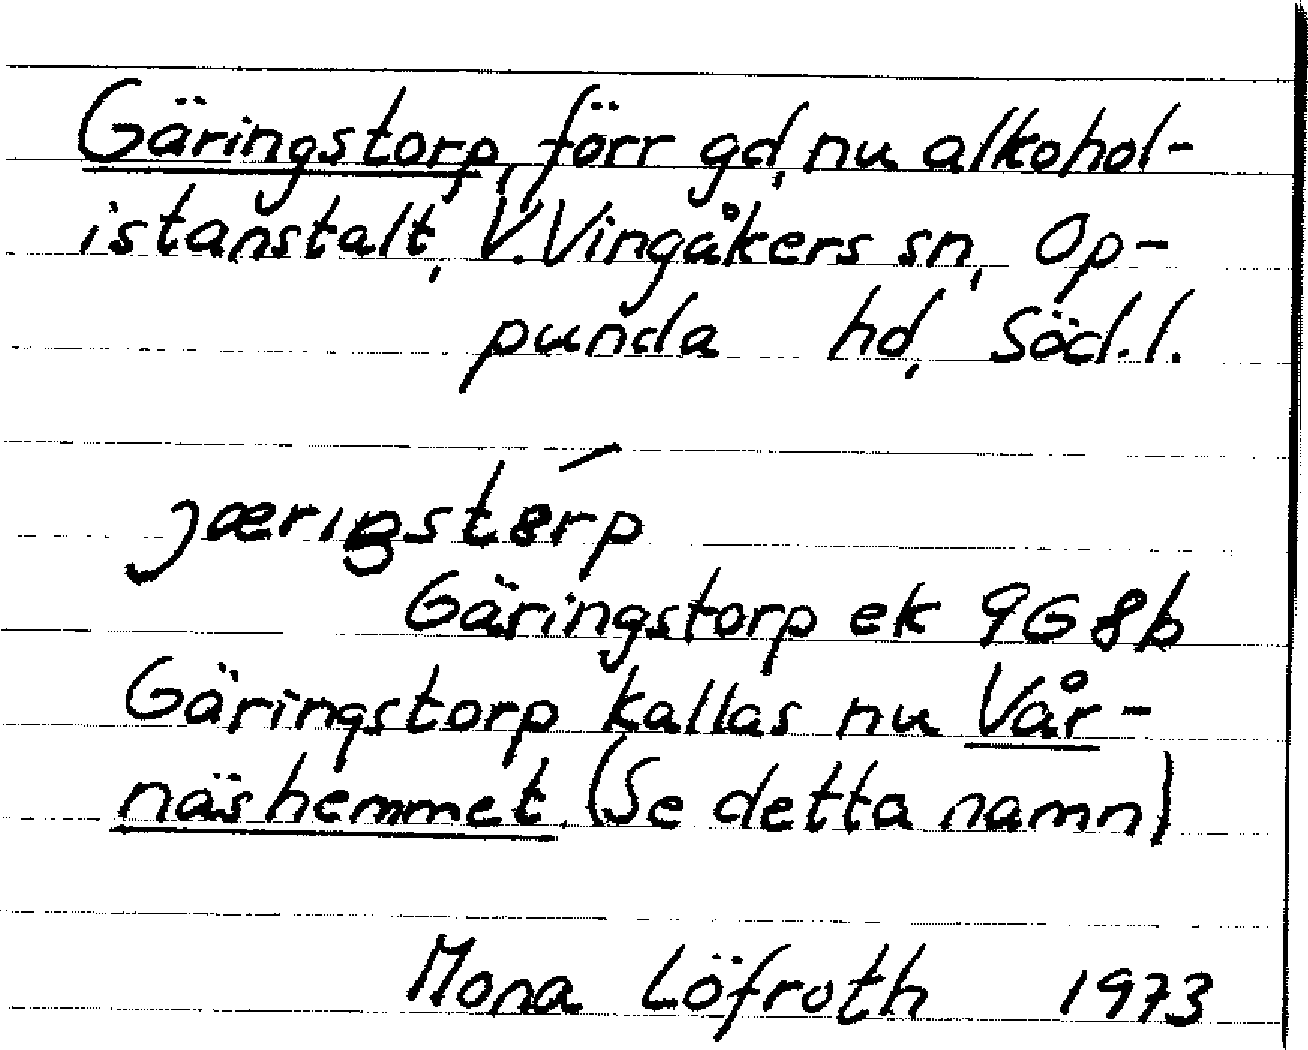 Gäringstorp, förr gd, nu alkohol-
istanstalt, V. Vingåkers sn, Op-
punda hd, Söd.l.
Gäringstorp ek 9G8b
Gäringstorp kallas nu Vår-
näshemmet. (Se detta namn)
Mona Löfroth 1973